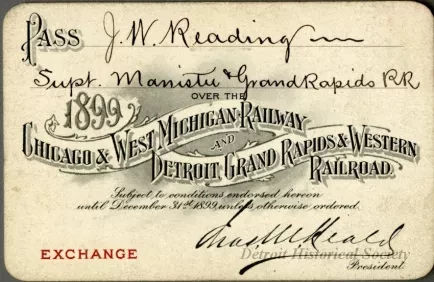 PASS J. W. Reading
Supt. Manistee & Grand Rapids RR
OVER THE
1899
CHICAGO & WEST MICHIGAN RAILWAY
AND
DETROIT GRAND RAPIDS & WESTERN
RAILROAD
Subject to conditions endorsed hereon
until December 31st 1899, unless otherwise ordered.
EXCHANGE
Chas M Heald
Detroit Historical Society
President.